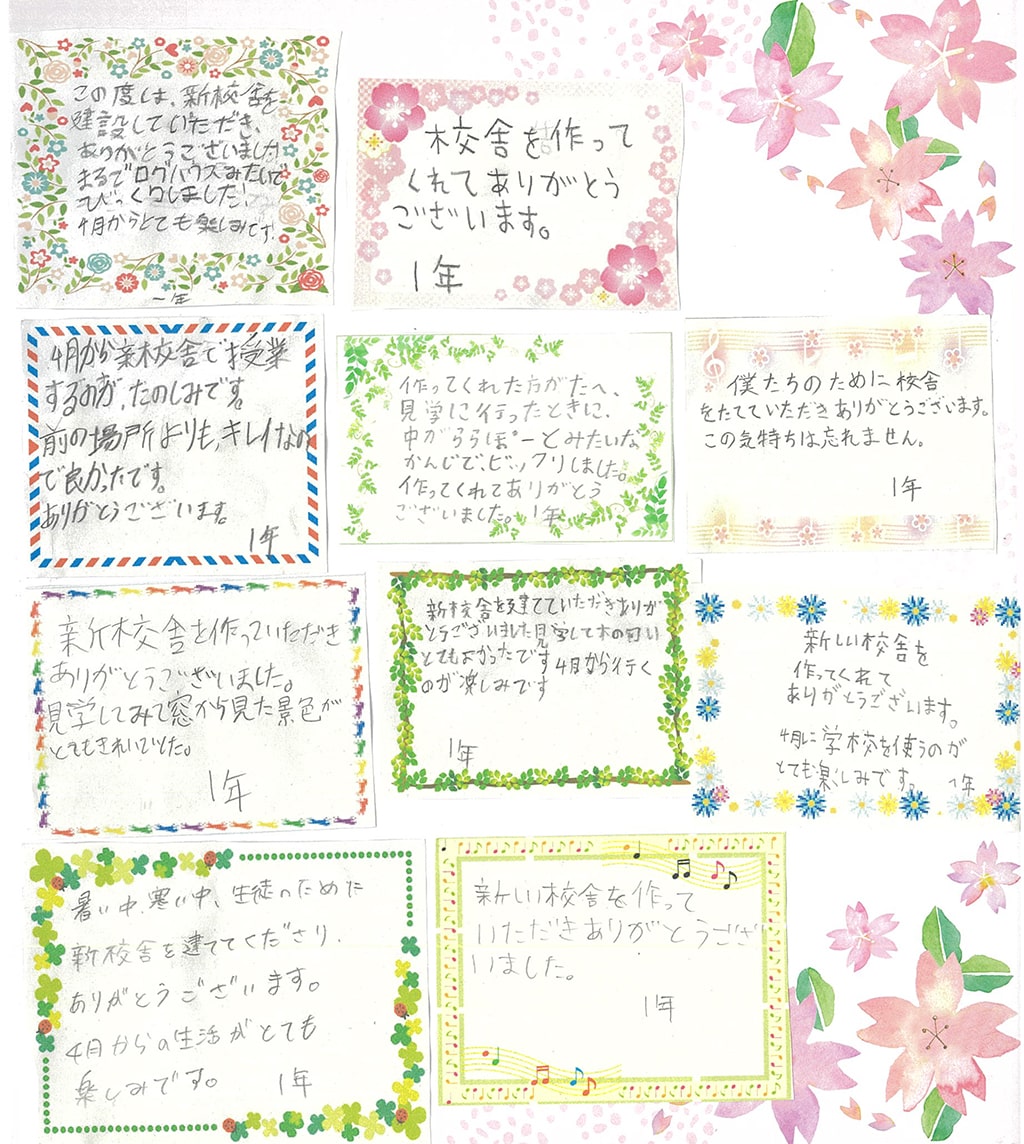 この度は、新校舎を
建設していただき、
ありがとうございました!
まるでログハウスみたいで
びっくりしました!
4月からとても楽しみです。
一年
校舎を作って
くれてありがとう
ございます。
1年
4月から新校舎で授業
するのが、たのしみです。
前の場所よりも、キレイなの
で良かったです。
ありがとうございます。
1年
作ってくれた方がたへ、
見学に行ったときに、
中がららぽーとみたいな
かんじで、ビックリしました。
作ってくれてありがとう
ございました。 1年
僕たちのために校舎
をたてていただきありがとうございます。
この気持ちは忘れません。
1年
新校舎を作っていただき
ありがとうございました。
見学してみて窓から見た景色が
とてもきれいでした。
1年
新校舎を建てていただきありが
とうございました見学して木の匂い
とてもよかったです 4月から行く
のが楽しみです
1年
新しい校舎を
作ってくれて
ありがとうございます。
4月に学校を使うのが
とても楽しみです。 1年
暑い中、寒い中、生徒のために
新校舎を建ててくださり、
ありがとうございます。
4月からの生活がとても
楽しみです。 1年
新しい校舎を作って
いただきありがとうござ
いました。
1年